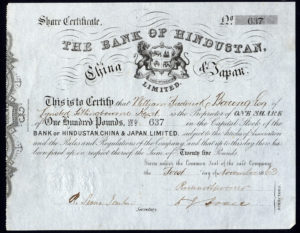 Share Certificate. No 637
THE BANK OF HINDUSTAN,
China & Japan.
LIMITED.
This is to Certify that William Frederick Baring Esq
of Street is the Proprietor of ONE SHARE
of One Hundred Pounds, No. 637 in the Capital Stock of the
BANK OF HINDUSTAN, CHINA & JAPAN, LIMITED, subject to the Articles of Association
and the Rules and Regulations of the Company and that up to this day there has
been paid up in respect thereof the Sum of Twenty five Pounds
Given under the Common Seal of the said Company
the First day of November 1863
Secretary